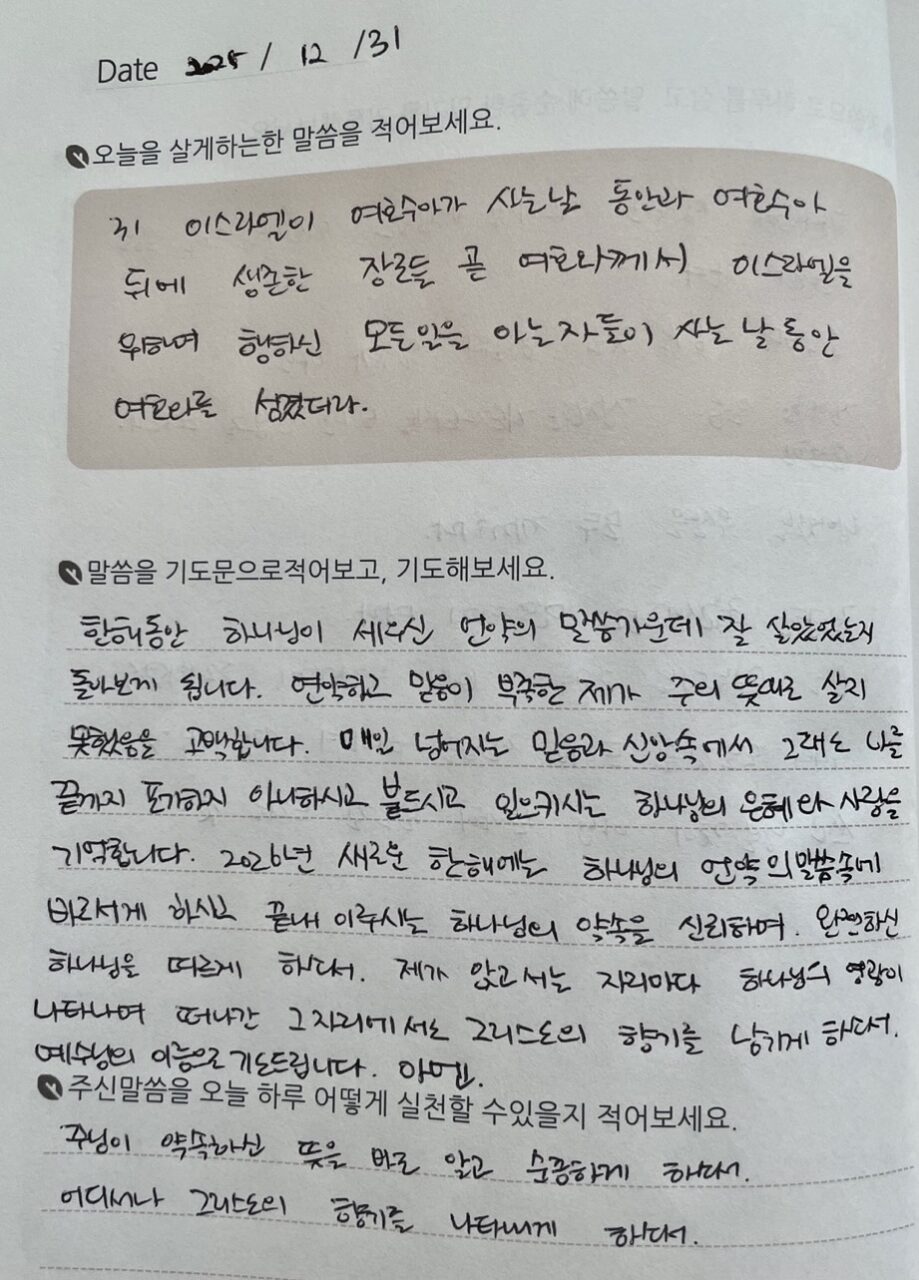 Date 2025 / 12 / 31
오늘을 살게하는한 말씀을 적어보세요.
31 이스라엘이 여호수아가 사는날 동안과 여호수아
뒤에 생존한 장로들 곧 여호와께서 이스라엘을
위하여 행하신 모든일을 아는자들이 사는 날 동안
여호와를 섬겼더라.
말씀을 기도문으로적어보고, 기도해보세요.
한해동안 하나님이 세우신 언약의 말씀가운데 잘 살았었는지
돌아보게 됩니다. 연약하고 믿음이 부족한 제가 주의 뜻대로 살지
못했음을 고백합니다. 매일 넘어지는 믿음과 신앙속에서 그래도 나를
끝까지 포기하지 아니하시고 붙드시고 일으키시는 하나님의 은혜와 사랑을
기억합니다. 2026년 새로운 한해에는 하나님의 언약의말씀속에
바로서게 하시고 끝내 이루시는 하나님의 약속을 신뢰하며. 완전하신
하나님을 따르게 하소서. 제가 앉고서는 자리마다 하나님의 영광이
나타나며 떠나간 그자리에서도 그리스도의 향기를 남기게 하소서.
예수님의 이름으로기도드립니다. 아멘.
주신말씀을 오늘 하루 어떻게 실천할 수있을지 적어보세요.
주님이 약속하신 뜻을 바로 알고 순종하게 하소서.
어디서나 그리스도의 향기를 나타내게 하소서.